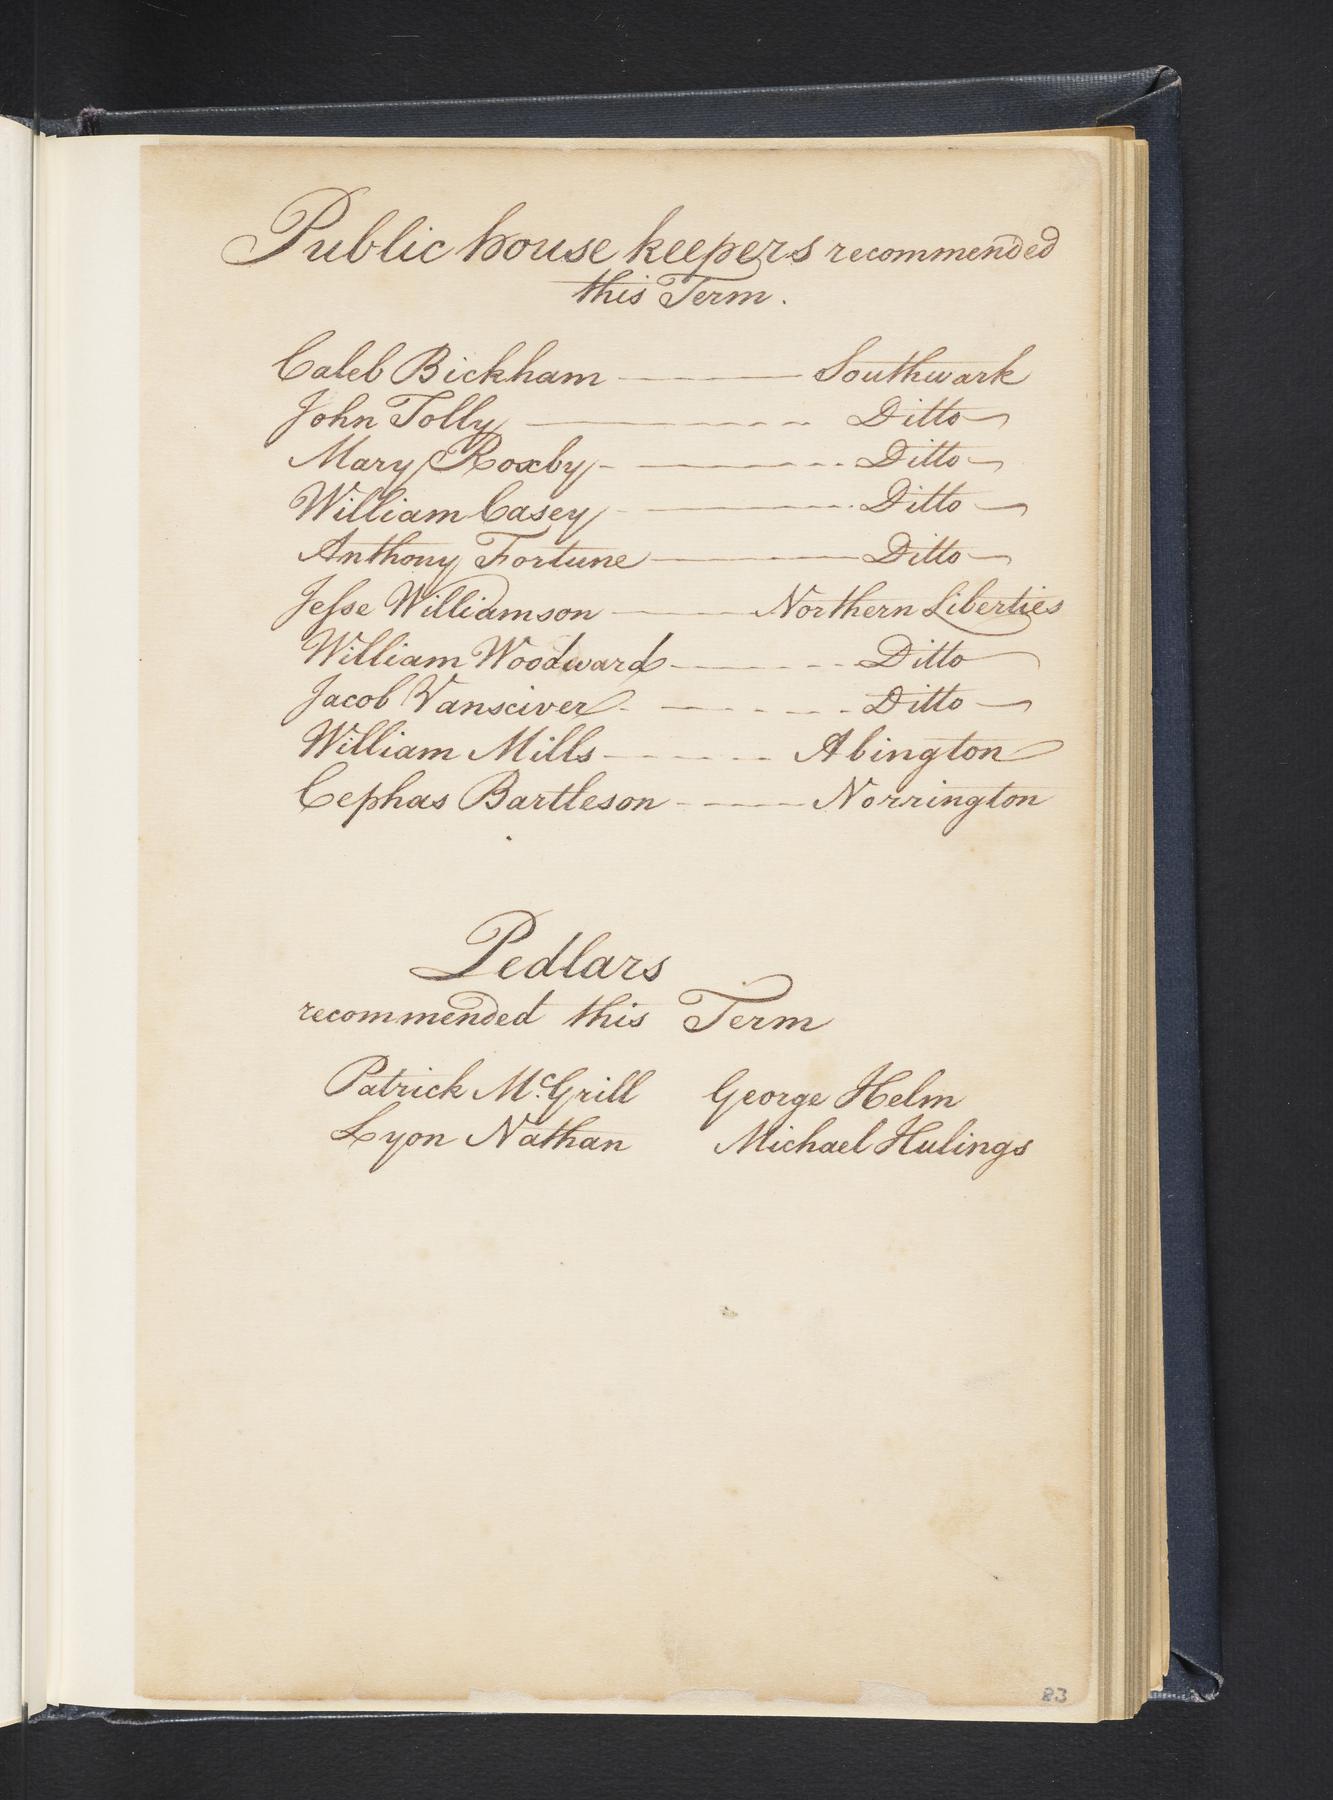 Public house keepers recommended
this Term.
Caleb Bickham Southwark
John Tolly Ditto
Mary Roxby Ditto
William Casey Ditto
Anthony Fortune Ditto
Jeſse Williamson Northern Liberties
William Woodward Ditto
Jacob Vansciver Ditto
William Mills Abington
Cephas Bartleson Norrington
Pedlars
recommended this Term
Patrick McGrill George Helm
Lyon Nathan Michael Hulings
23